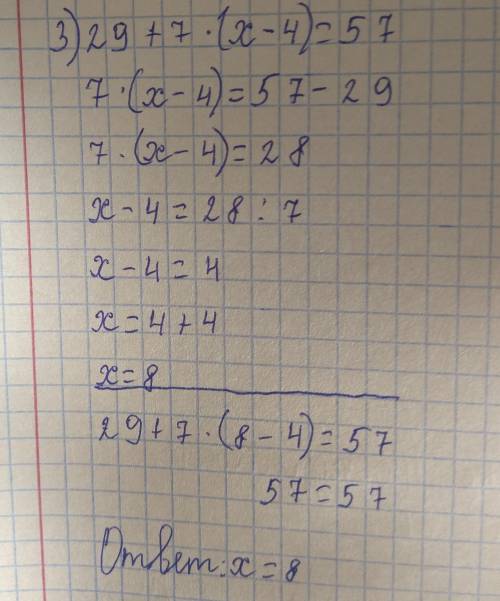 3) 29 + 7 · (x - 4) = 57
7 · (x - 4) = 57 - 29
7 · (x - 4) = 28
x - 4 = 28 : 7
x - 4 = 4
x = 4 + 4
x = 8
29 + 7 · (8 - 4) = 57
57 = 57
Ответ: x = 8